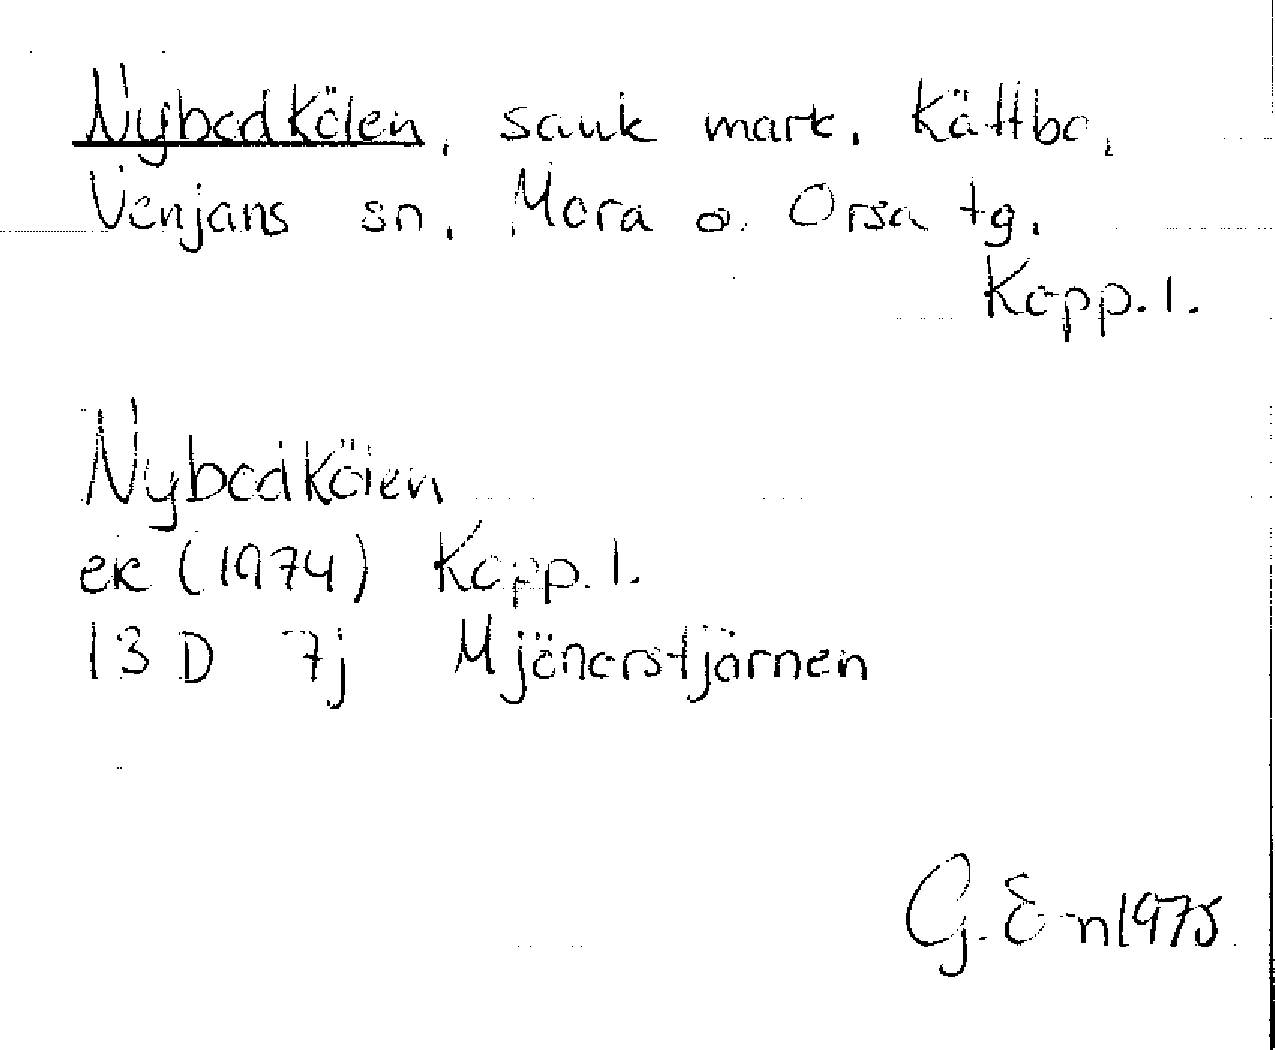 Nybodkölen, sank mark, Kättbo,
Venjans sn, Mora o. Orsa tg,
Kopp. l.
Nybodkölen
ek (1974) Kopp. l.
13 D 7j Mjönarstjärnen
G. E-n 1975